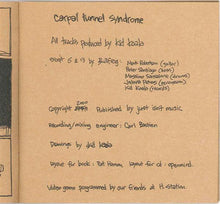 carpal tunnel syndrome
All tracks produced by kid koala
except 6 & 13 by bullfrog:
Mark Robertson (guitar)
Peter Santiago (bass)
Massimo Sansalone (drums)
James (percussion)
Kid Koala (hands)
Copyright 2000 Published by just isn't music.
Recording/mixing engineer: Carl Bastien
Drawings by kid koala
layout for book: Pat Hamou, layout for cd: openmind.
Video game programmed by our friends at H.station.